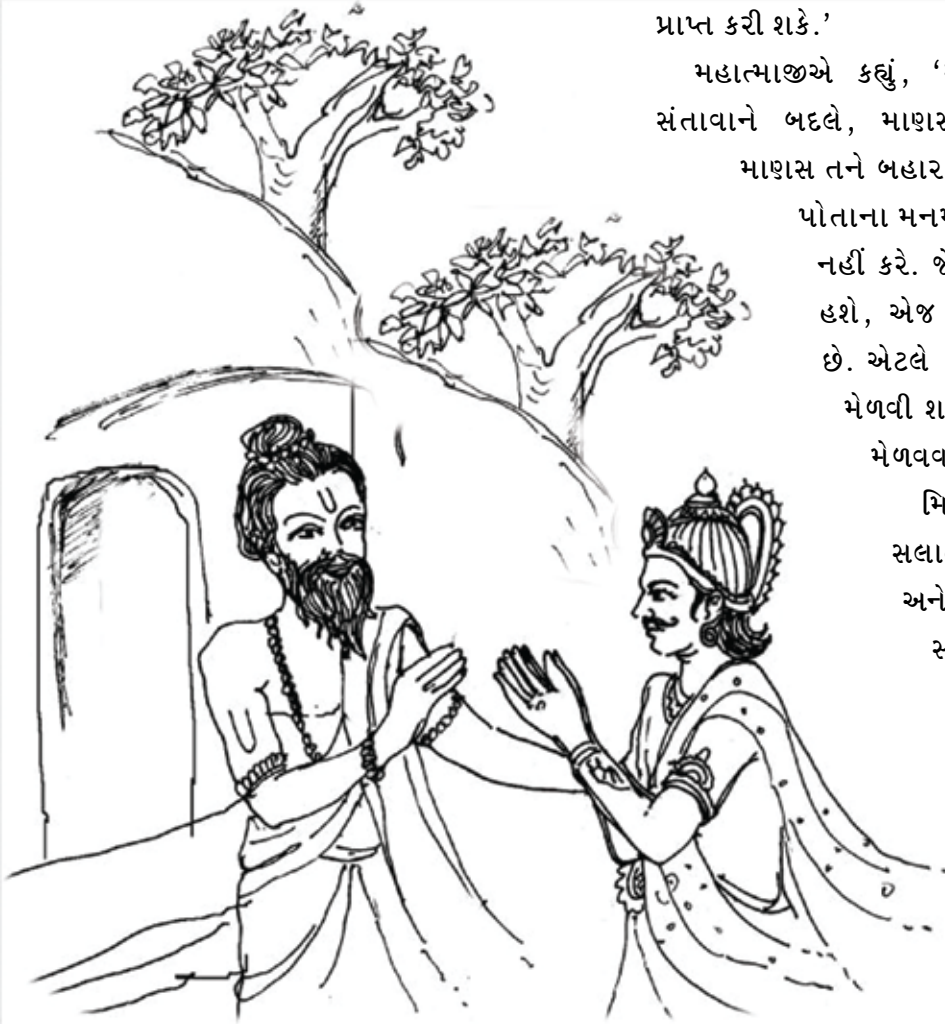 પ્રાપ્ત કરી શકે.’
મહાત્માજીએ કહ્યું, ‘
સંતાવાને બદલે, માણસ
માણસ તને બહાર
પોતાના મનમ
નહીં કરે. જે
હશે, એજ
છે. એટલે
મેળવી શ
મેળવવ
મિ
સલા
અને
સ